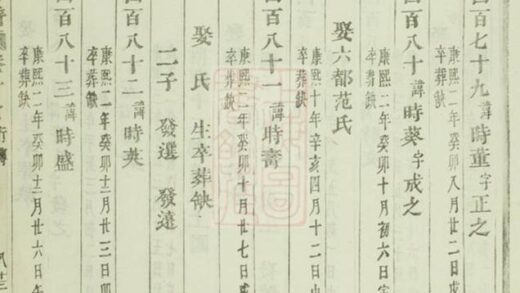 百七十九 諱 時董 字 正之
康熙二年癸卯八月廿二日戌
卒葬缺
四百八十 諱 時葵 字 成之
康熙二年癸卯十月初六日
卒葬缺
娶六都范氏
康熙十年辛亥四月十二日
卒葬缺
四百八十一 諱 時
康熙二年癸卯十月廿七日戌
卒葬缺
娶 氏 生卒葬缺
二子 發選 發遠
百八十二 諱 時英
康熙二年癸卯十二月廿三日卯
卒葬缺
百八十三 諱 時盛
康熙二年癸卯十二月廿六日午
卒葬缺